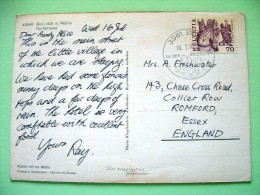 Wed 16th
Dear Aunty Alice
This is the main street
of the little village in
which we are staying.
We have had some glorious
sunny days on the high
tops and a few days of
rain. The hotel is very
comfortable with excellent
food.
Yours Ray.
HELVETIA
70
Mrs. A. Freshwater
143, Chase Cross Road,
Collier Row
ROMFORD,
Essex
ENGLAND